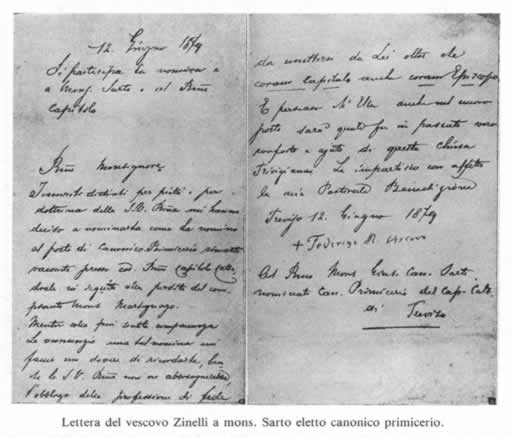 12. Giugno 1879
Si partecipa la nomina
a Mons. Sarto e al
Capitolo
Monsignore
I meriti distinti per pietà e per
dottrina della S.V. mi hanno
deciso a nominarla come la nomino
al posto di Canonico Primicerio rimasto
vacante presso Capitolo Catte-
drale in seguito alla perdita del com-
pianto Mons.
Mentre colla più
Le una tal nomina mi
faccio un dovere di ricordarle,
che la S.V. non
l'obbligo della professione di fede
da emettersi da Lei oltre che
coram Capitulo anche coram Episcopo.
E persuaso ch'Ella anche nel nuovo
posto sarà quale fu in passato vero
conforto e ajuto di questa chiesa
Trivigiana, Le impartisco con affetto
la mia Pastorale Benedizione
Treviso 12. Giugno 1879
+ Federico M. Vescovo
Al Mons. Gius. Can. Sarto
nominato Can. Primicerio del Cap. Catt.
di Treviso
Lettera del vescovo Zinelli a mons. Sarto eletto canonico primicerio.